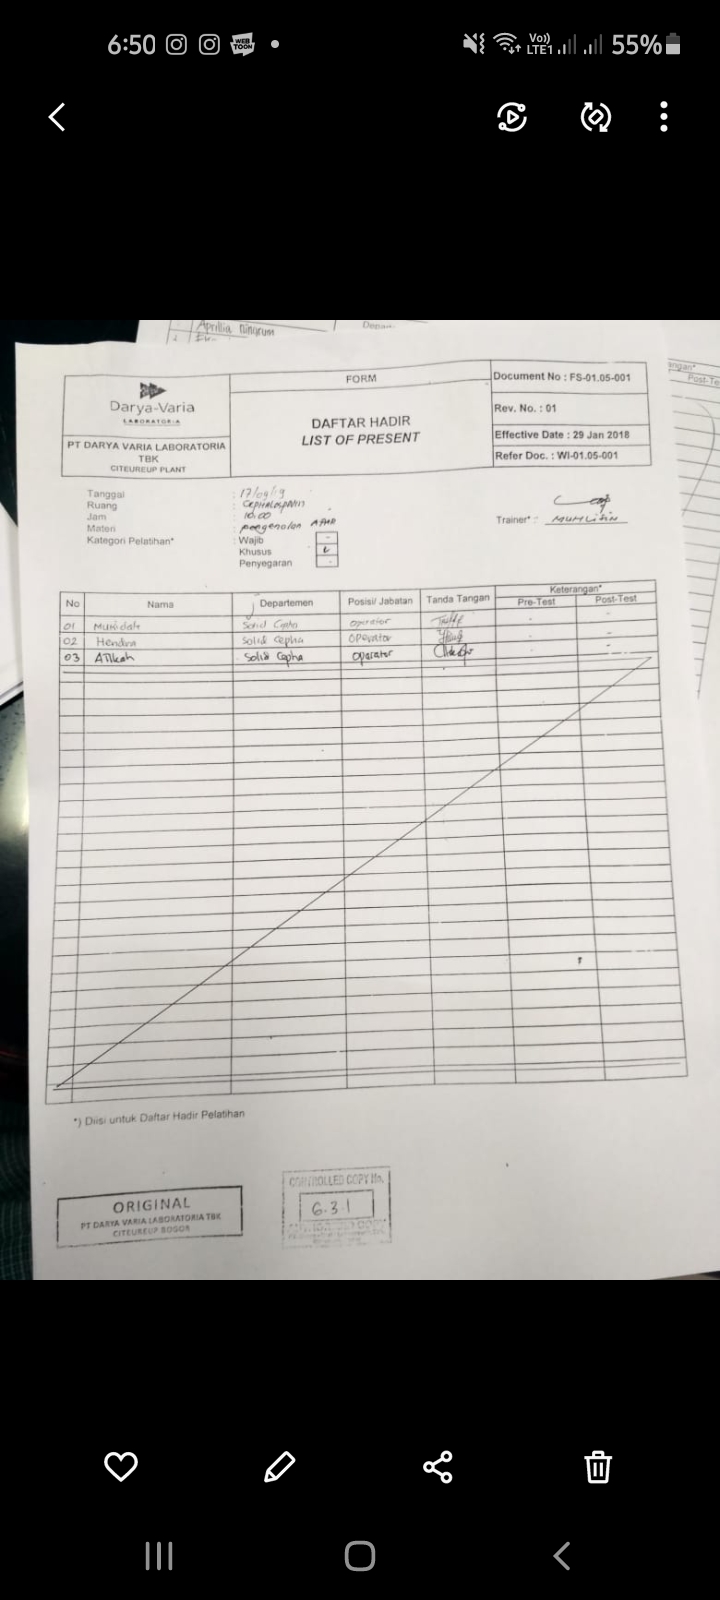 6:50
Vo)) LTE1 55%
Aprillia Ningrum
Darya-Varia
LABORATORIA
PT DARYA VARIA LABORATORIA
TBK
CITEUREUP PLANT
FORM
DAFTAR HADIR
LIST OF PRESENT
Document No : FS-01.05-001
Rev. No. : 01
Effective Date : 29 Jan 2018
Refer Doc. : WI-01.05-001
Tanggal : 17/09/19
Ruang : Cephalosporin
Jam : 10.00
Materi : pengenalan APAR
Kategori Pelatihan* : Wajib -
Khusus
Penyegaran -
Trainer* : MUHLISIN
No Nama Departemen Posisi/ Jabatan Tanda Tangan Keterangan*
Pre-Test Post-Test
01 Solid Cepha operator - -
02 Hendra Solid Cepha operator - -
03 Atikah Solid Cepha operator - -
*) Diisi untuk Daftar Hadir Pelatihan
ORIGINAL
PT DARYA VARIA LABORATORIA TBK
CITEUREUP BOGOR
CONTROLLED COPY No.
6.3.1
Post-Te